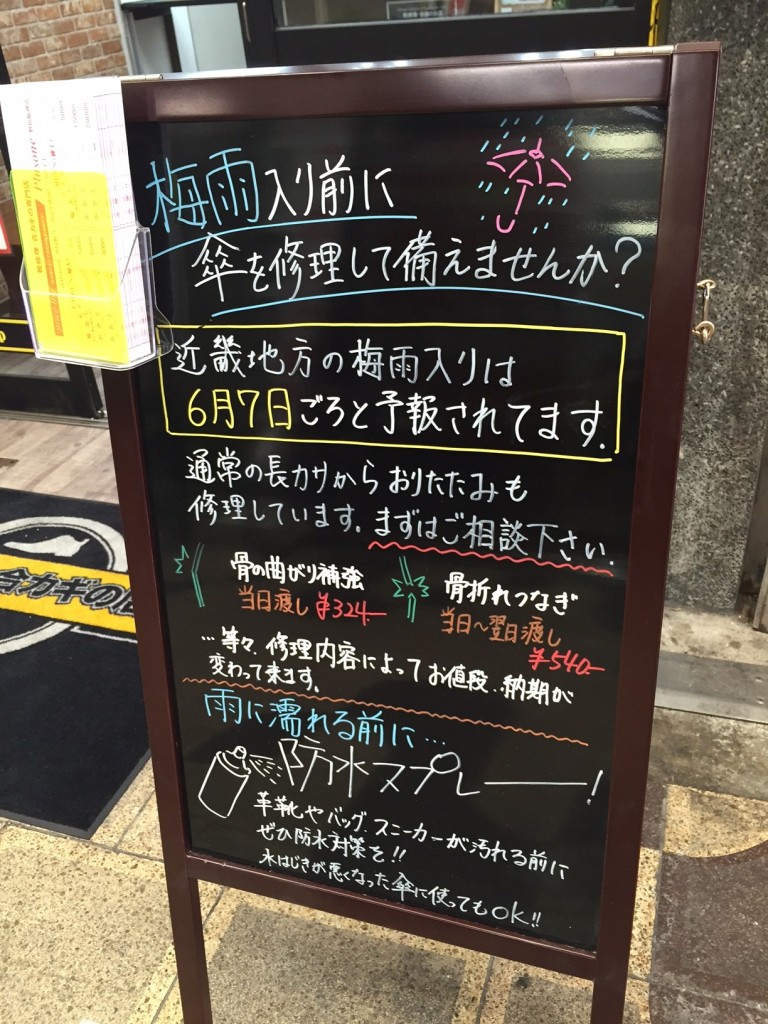 梅雨入り前に
傘を修理して備えませんか?
近畿地方の梅雨入りは
6月7日ごろと予報されてます.
通常の長カサから おりたたみも
修理しています. まずはご相談下さい.
骨の曲がり補強
当日渡し ¥324-
骨折れつなぎ
当日~翌日渡し
¥540-
…等々. 修理内容によってお値段、納期が
変わって来ます。
雨に濡れる前に…
防水スプレー!
革靴やバッグ、スニーカーが汚れる前に
ぜひ防水対策を!!
水はじきが悪くなった傘に使ってもOK!!
合カギの